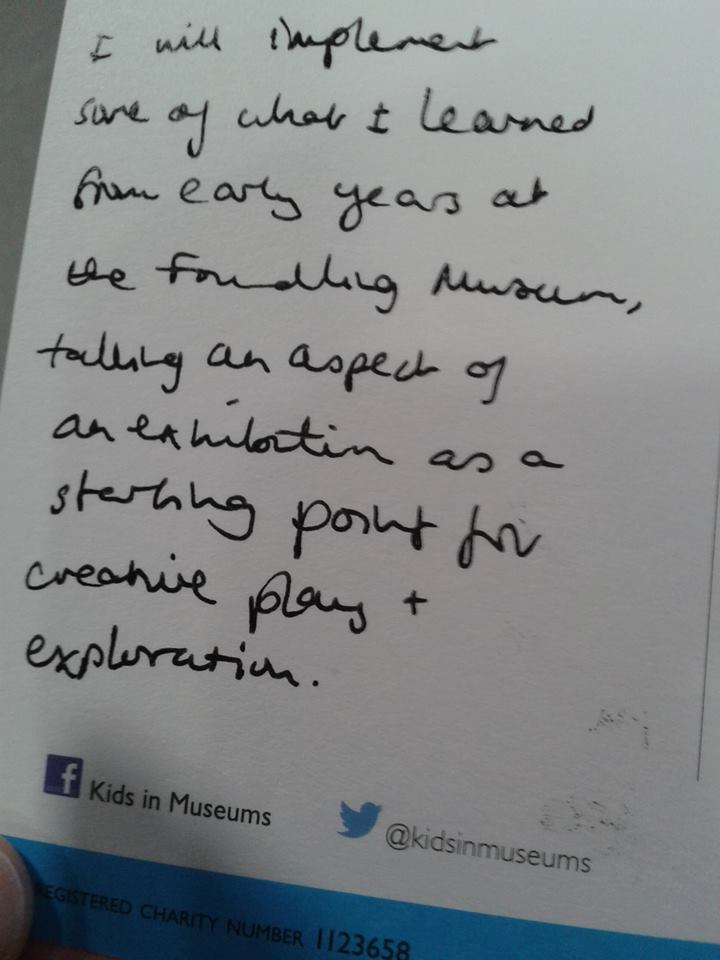 I will implement
some of what I learned
from early years at
the Foundling Museum,
taking an aspect of
an exhibition as a
starting point for
creative play +
exploration.
Kids in Museums
@kidsinmuseums
REGISTERED CHARITY NUMBER 1123658